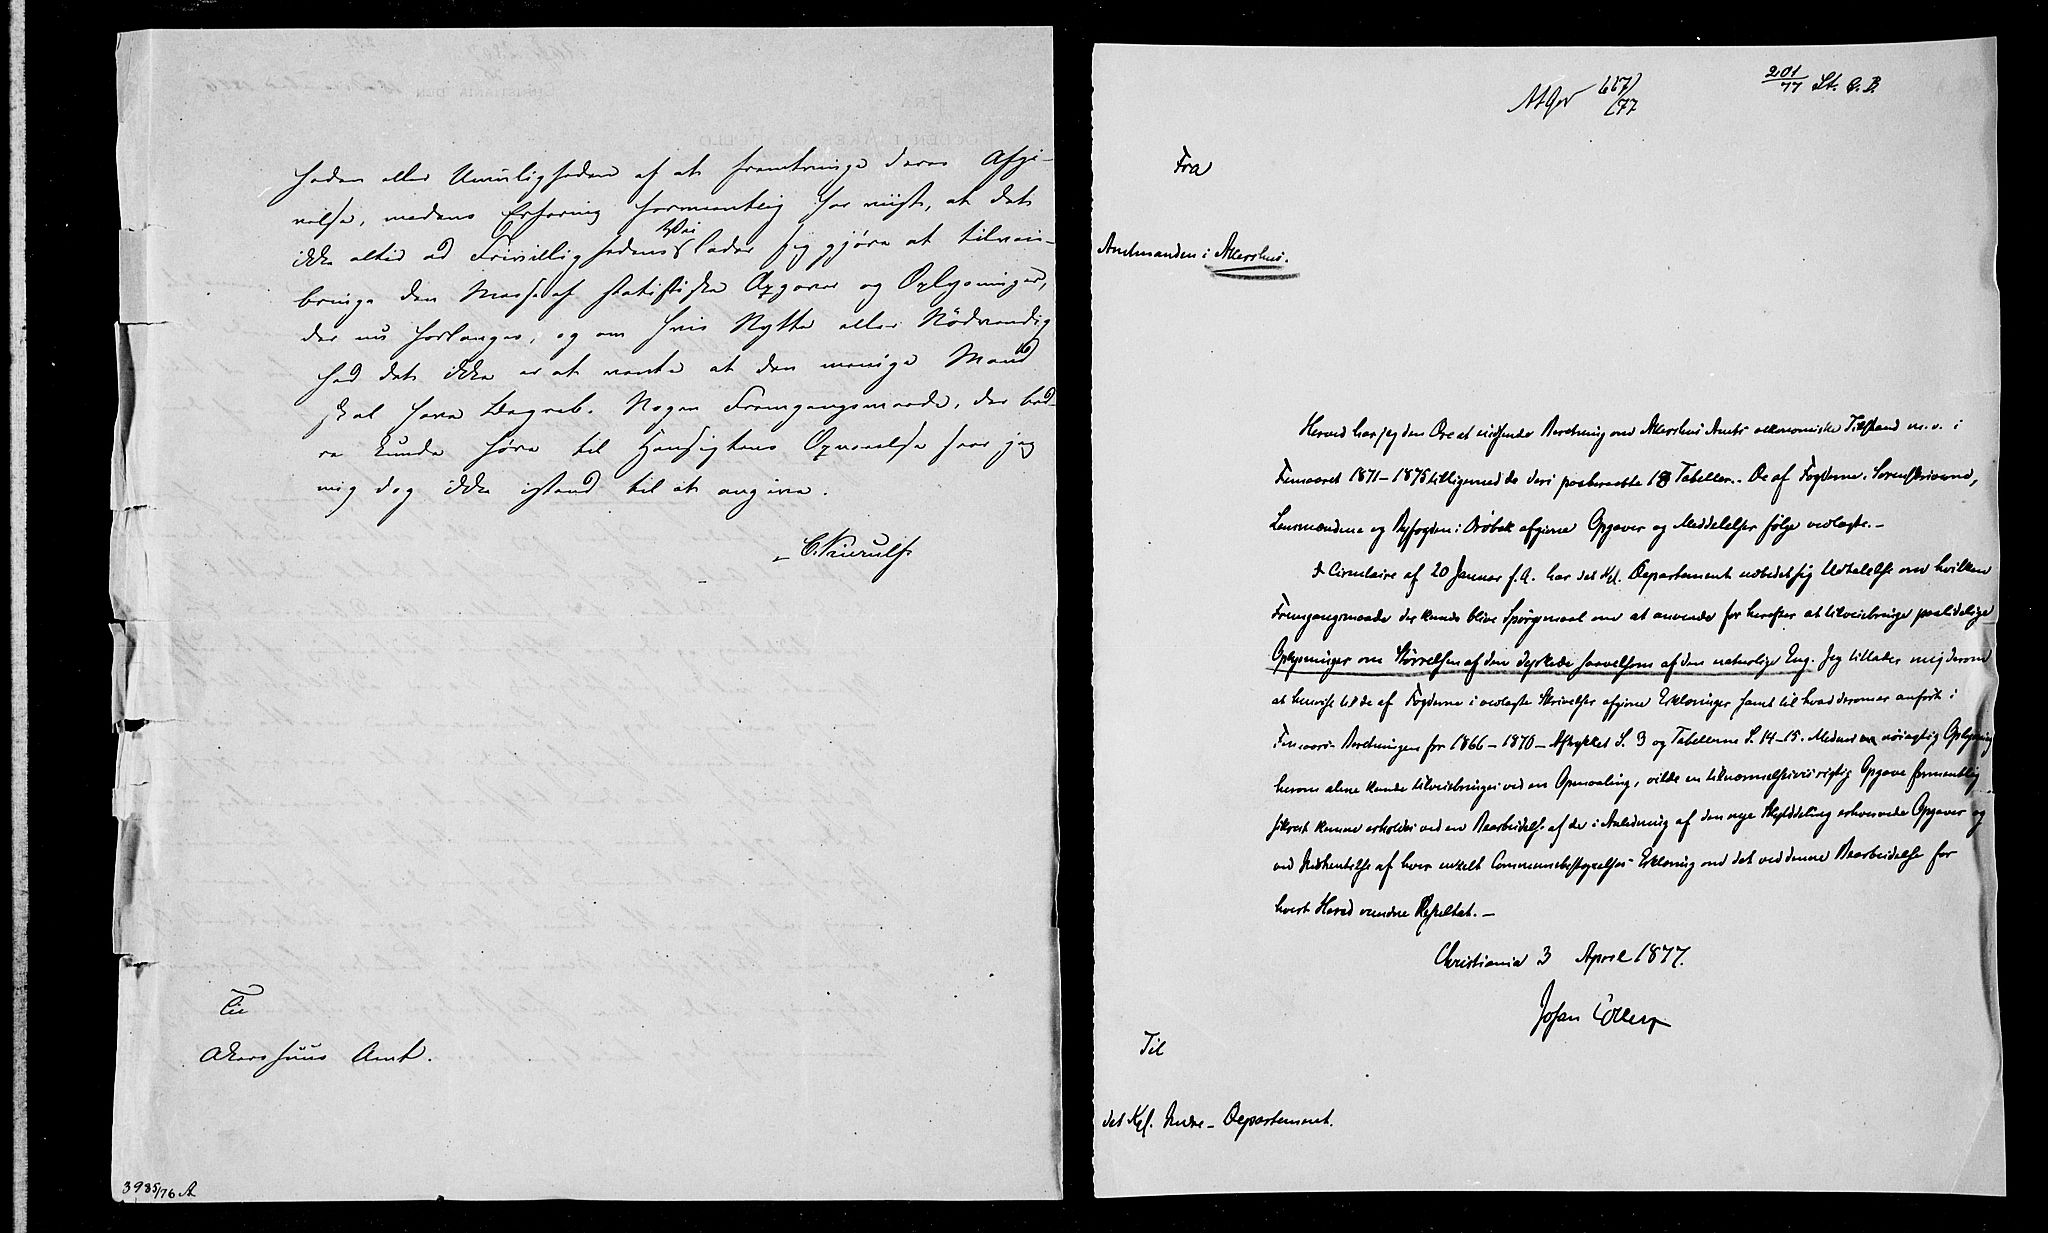 heden eller Umuligheden af at fremtvinge deres Afgi-
velse, medens Erfaring formentlig har viist, at det
ikke altid ad Frivillighedens Vei lader sig gjøre at tilveie-
bringe den Masse af statistiske Opgaver og Oplysninger,
der nu forlanges, og om hvis Nytte eller Nødvendig
hed det ikke er at vente at den menige Mand
skal have Begreb. Nogen Fremgangsmaade, der bed-
re kunde føre til Hensigtens Opnaaelse seer jeg
mig dog ikke istand til at angive.
C. Kierulf
Til
Akershuus Amt.
3985/76 A
667/77
201/77 St. C. B.
Fra
Amtmanden i Akershus.
Herved har jeg den Ære at indsende Beretning om Akershus Amts oekonomiske Tilstand m. v. i
Femaaret 1871-1875 tilligemed de deri paaberaabte 18 Tabeller. - De af Fogderne, Sorenskriverne,
Lensmændene og Byfogden i Drøbak afgivne Opgaver og Meddelelser følge vedlagte. -
I Circulaire af 20 Januar f. A. har det Kgl. Departement udbedet sig Udtalelse om hvilken
Fremgangsmaade der kunde blive Spørgsmaal om at anvende for herefter at tilveiebringe paalidelige
Oplysninger om Størrelsen af den dyrkede saavelsom af den naturlige Eng. Jeg tillader mig derom
at henvise til de af Fogderne i vedlagte Skrivelser afgivne Erklæringer samt til hvad derom er anført i
Femaars-Beretningen for 1866-1870 - Aftrykket S. 3 og Tabellerne S. 14-15. Medens en nøiagtig Oplysning
herom alene kunde tilveiebringes ved en Opmaaling, vilde en tilnærmelsesvis rigtig Opgave formentlig
sikrest kunne erholdes ved en Bearbeidelse af de i Anledning af den nye Skylddeling erhvervede Opgaver og
ved Indhentelse af hver enkelt Communebestyrelses Erklæring om det ved denne Bearbeidelse for
hvert Herred vundne Resultat. -
Christiania 3 April 1877.
Johan Collett
Til
det Kgl. Indre-Departement.